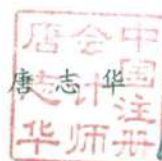 中国注册
会计师
唐志华
唐志华